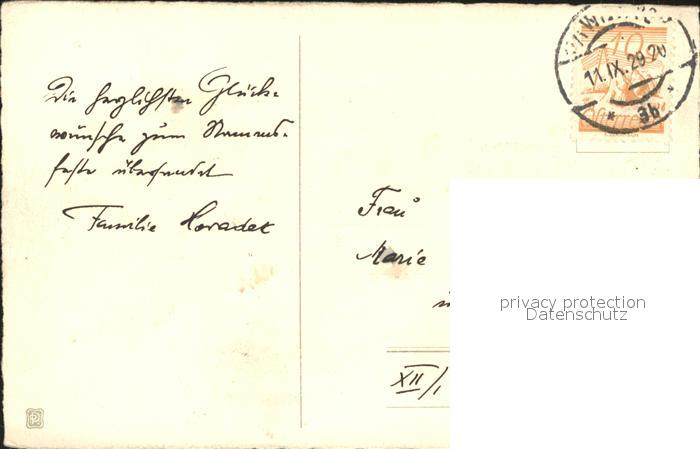 Die herzlichsten Glück-
wünsche zum Namens-
feste übersendet
Familie Horadek
Frau
Marie
XII/1
11.IX.29 20
* 3b *
10
privacy protection
Datenschutz